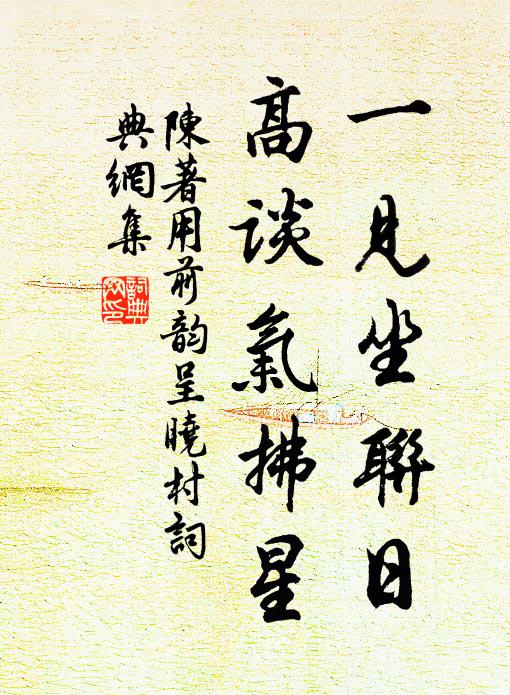 一見坐聯日
高談氣拂星
陳著用前韵呈曉村詞
典網集
詞典